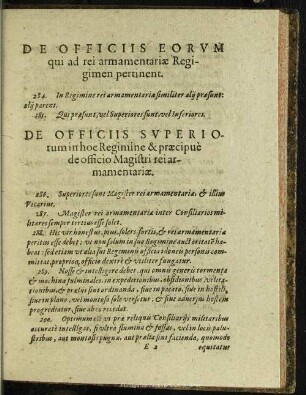 DE OFFICIIS EORVM
qui ad rei armamentariæ Regi-
gimen pertinent.
284. In Regimine rei armamentariæ similiter alij præsunt:
alij parent.
285. Qui præsunt, vel Superiores sunt, vel Inferiores.
DE OFFICIIS SVPERIO-
rum in hoc Regimine & præcipuè
de officio Magistri rei ar-
mamentariæ.
286. Superiores sunt Magister rei armamentariæ, & illius
Vicarius.
287. Magister rei armamentariæ inter Consiliarios mi-
litares semper tertius esse solet.
288. Hic vir honestus, pius, solers, fortis, & rei armamentariæ
peritus esse debet: vt non solum in suo Regimine auctoritatē ha-
beat: sed etiam vt alia sui Regiminis officia idoneis personis com-
mittat, proprioq́ officio dextrè & vtiliter fungatur.
289. Nosse & intelligere debet, qui omnis generis tormenta
& machinæ fulminales, in expeditionibus, obsidionibus, velita-
tionibus, & prælijs sint ordinanda, siue in pacato, siue in hostili,
siue in plano, vel montoso solo versetur, & siue aduersus hostem
progrediatur, siue abeo recedat.
290. Optimum est vt præ reliquis Consiliarijs militaribus
accuratè intelligat, si vltra flumina & fossas, vel in locis palu-
stribus, aut montosis pugna, aut prælia sint facienda, quomodo
E 2 equitatus